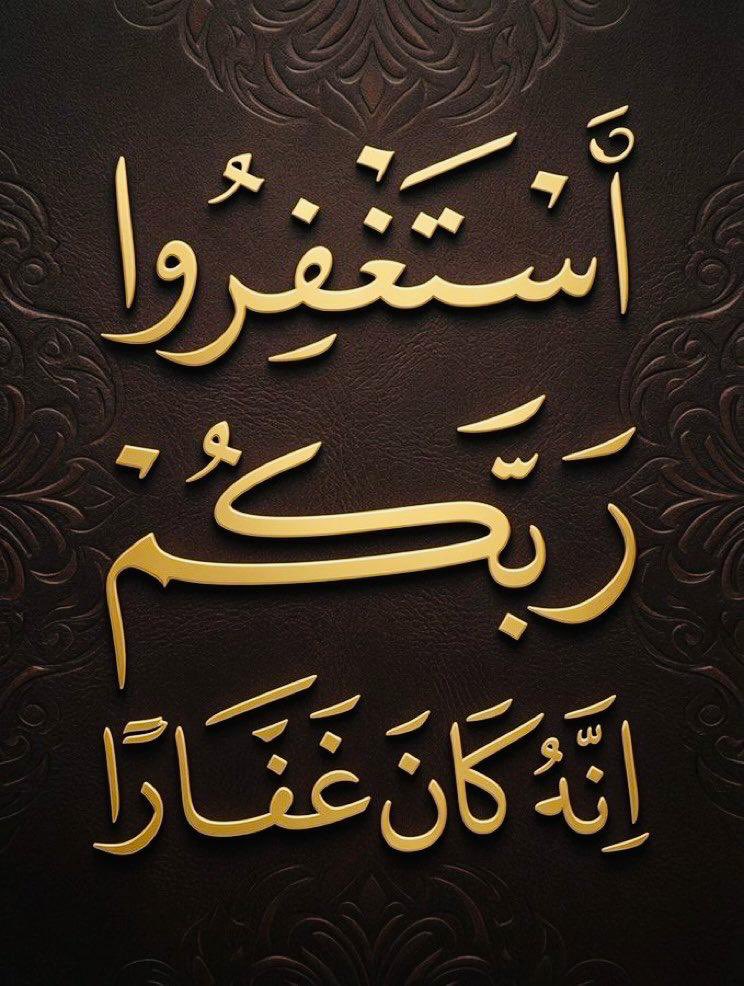 أَسْتَغْفِرُوا
رَبَّكُمْ
اِنَّهُ كَانَ غَفَّارًا